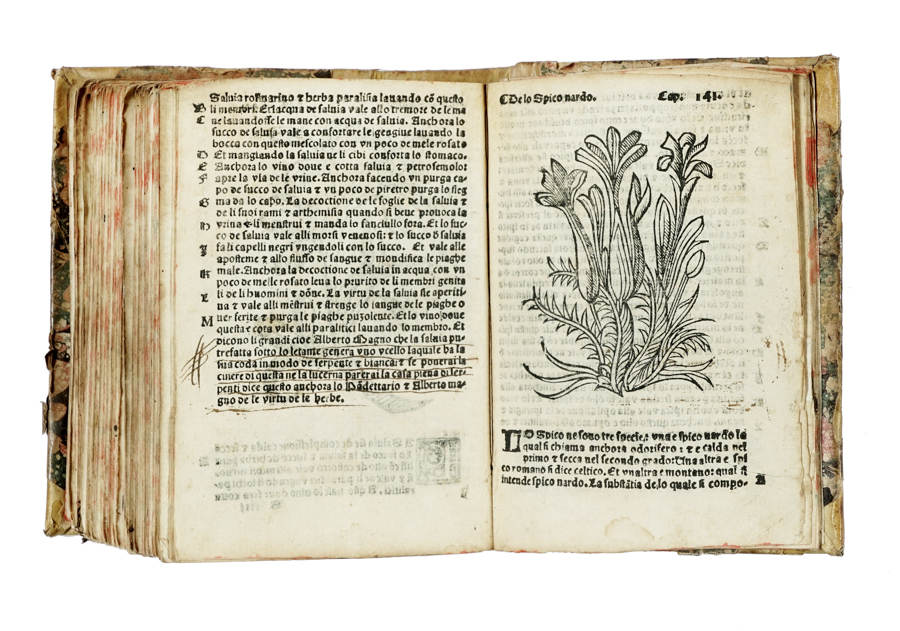 Saluia rosmarino ⁊ herba paralisia lauando cō questo
B li membri. Et lacqua de saluia vale allo tremore de le ma
C ne lauandosse le mane con acqua de saluia. Anchora lo
succo de saluia vale a confortare le gengiue lauando la
bocca con questo mescolato con vn poco de mele rosato
D Et mangiando la saluia ne li cibi conforta lo stomaco.
E Anchora lo vino doue e cotta saluia ⁊ petrosemolo:
F apre la via de le vrine. Anchora facendo vn purga ca-
po de succo de saluia ⁊ vn poco de piretro purga lo fleg
G ma da lo capo. La decoctione de le foglie de la saluia ⁊
de li suoi rami ⁊ arthemisia quando si beue prouoca la
H vrina ⁊ li menstrui ⁊ manda lo fanciullo fora. Et lo suc-
co de saluia vale alli morsi venenosi: ⁊ lo succo d saluia
I fa li capelli negri vngendoli con lo succo. Et vale alle
aposteme ⁊ allo flusso de sangue ⁊ mondifica le piaghe
K male. Anchora la decoctione de saluia in acqua con vn
poco de melle rosato leua lo prurito de li membri genita
L li de li huomini ⁊ dōne. La virtu de la saluia sie aperiti-
ua ⁊ vale alli mēstrui ⁊ strenge lo sangue de le piaghe o
M uer ferite ⁊ purga le piaghe puzolente. Et lo vino doue
questa e cota vale alli paralitici lauando lo membro. Et
dicono li grandi cioe Alberto Magno che la saluia pu-
trefatta sotto lo letame genera vno vcello laquale ha la
sua coda in modo de serpente ⁊ bianca: ⁊ se ponerai la
cinere di questa ne la lucerna parerai la casa piena di ser-
penti dice questo anchora lo Pādettario ⁊ Alberto ma-
gno de le virtu de le herbe.
De lo Spico nardo. Cap. 141.
LO Spico ne sono tre specie, ⁊ vna e spico nardo la
qual si chiama anchora odorifero: ⁊ e calda nel
primo ⁊ secca nel secondo grado: Una altra e spi
co romano si dice celtico. Et vnaltra e montano: qual si
intende spico nardo. La substātia de lo quale si compo- A